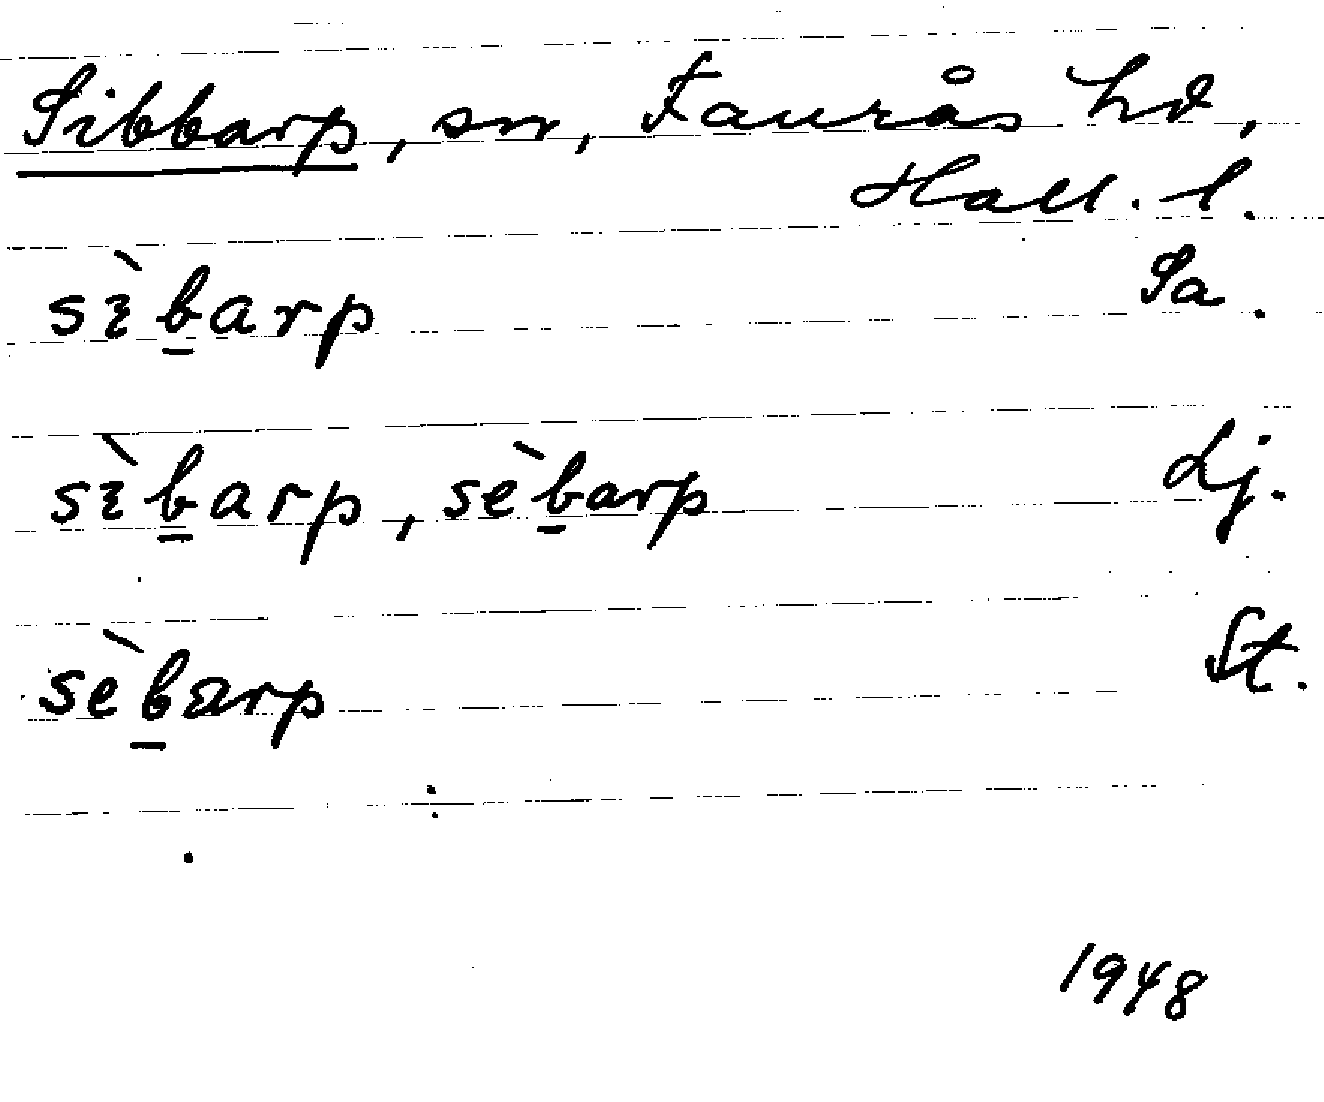 Sibbarp, sn, Faurås hd,
Hall. l.
sìbarp Sa.
sìbarp, sèbarp Lj.
sèbarp St.
1948